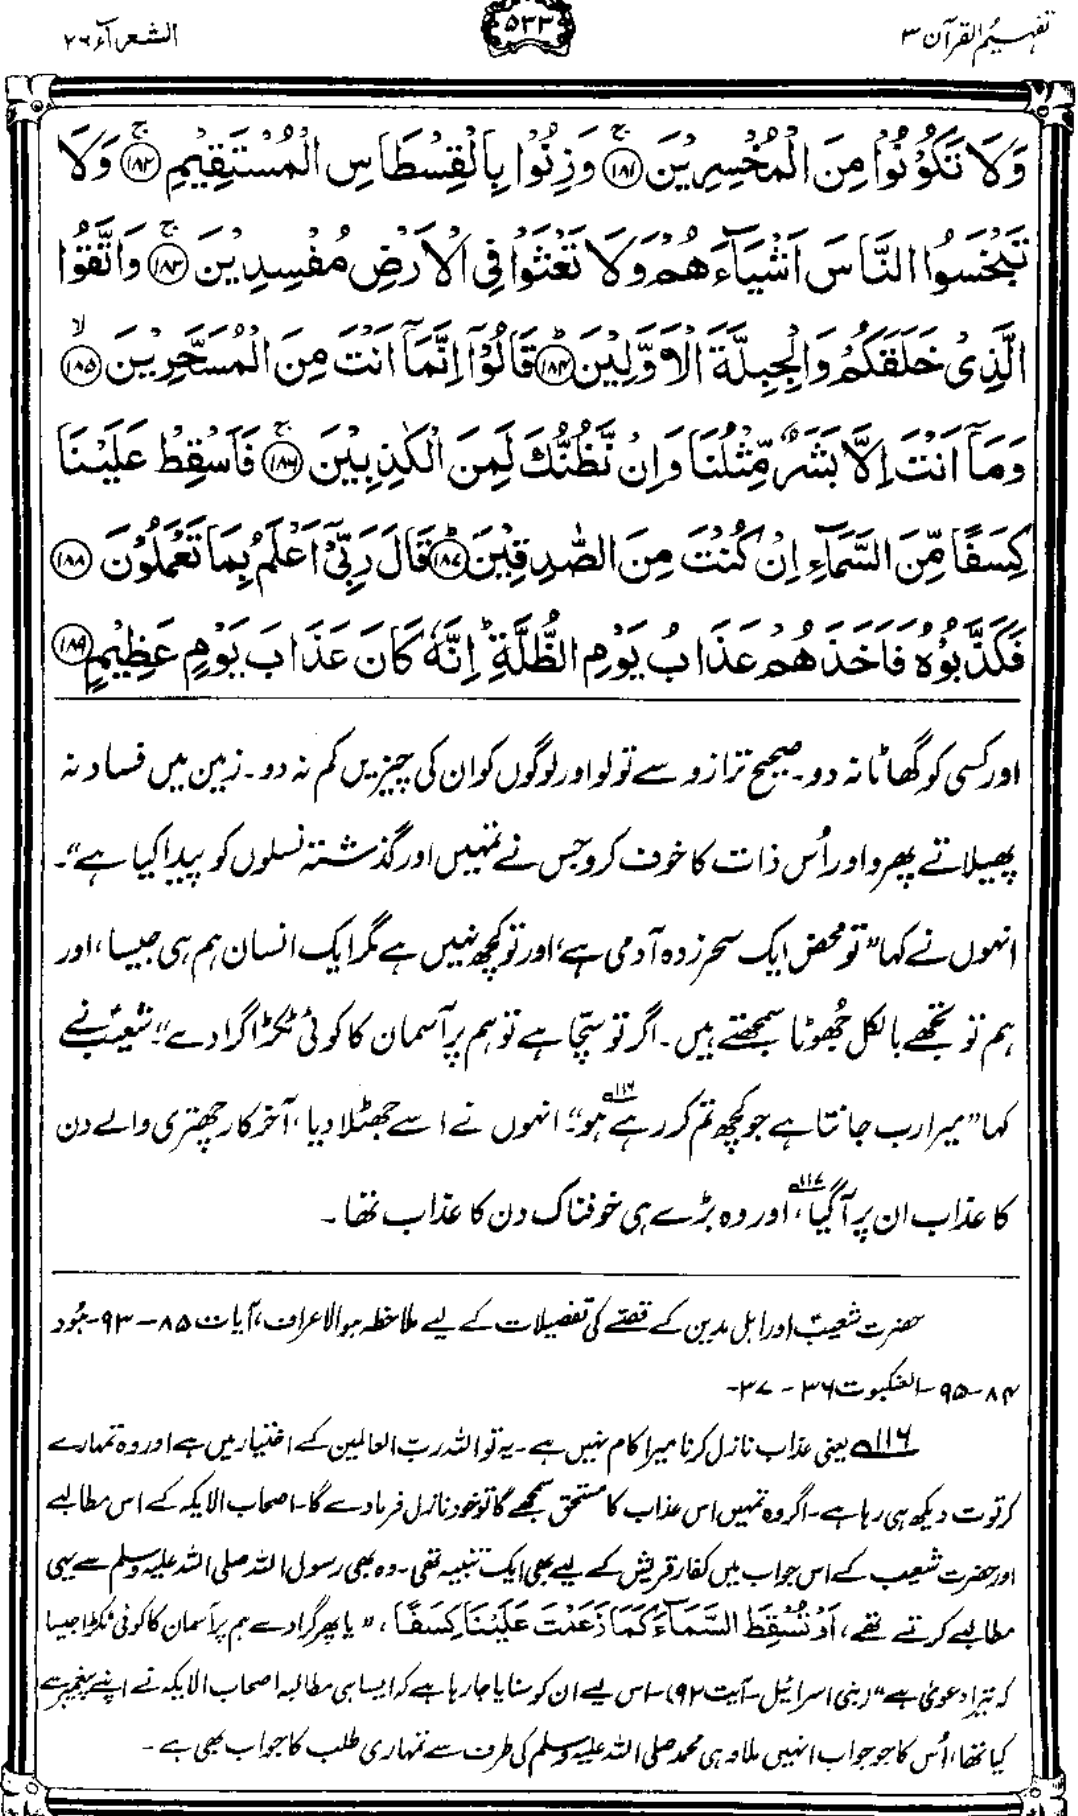 تفہیم القرآن ۳
۵۳۳
الشعرآء ۲۶
وَلَا تَكُوْنُوْا مِنَ الْمُخْسِرِيْنَ ۚ﴿۱۸۱﴾ وَزِنُوْا بِالْقِسْطَاسِ الْمُسْتَقِيْمِ ۚ﴿۱۸۲﴾ وَلَا
تَبْخَسُوا النَّاسَ اَشْيَآءَهُمْ وَلَا تَعْثَوْا فِى الْاَرْضِ مُفْسِدِيْنَ ۚ﴿۱۸۳﴾ وَاتَّقُوا
الَّذِىْ خَلَقَكُمْ وَالْجِبِلَّةَ الْاَوَّلِيْنَ ؕ﴿۱۸۴﴾ قَالُوْۤا اِنَّمَاۤ اَنْتَ مِنَ الْمُسَحَّرِيْنَ ۙ﴿۱۸۵﴾
وَمَاۤ اَنْتَ اِلَّا بَشَرٌ مِّثْلُنَا وَاِنْ نَّظُنُّكَ لَمِنَ الْكٰذِبِيْنَ ۚ﴿۱۸۶﴾ فَاَسْقِطْ عَلَيْنَا
كِسَفًا مِّنَ السَّمَآءِ اِنْ كُنْتَ مِنَ الصّٰدِقِيْنَ ؕ﴿۱۸۷﴾ قَالَ رَبِّىْۤ اَعْلَمُ بِمَا تَعْمَلُوْنَ ﴿۱۸۸﴾
فَكَذَّبُوْهُ فَاَخَذَهُمْ عَذَابُ يَوْمِ الظُّلَّةِ ؕ اِنَّهٗ كَانَ عَذَابَ يَوْمٍ عَظِيْمٍ ﴿۱۸۹﴾
اور کسی کو گھاٹا نہ دو۔ صحیح ترازو سے تولو اور لوگوں کو ان کی چیزیں کم نہ دو۔ زمین میں فساد نہ
پھیلاتے پھرو اور اُس ذات کا خوف کرو جس نے تمہیں اور گذشتہ نسلوں کو پیدا کیا ہے“۔
انہوں نے کہا ”تو محض ایک سحرزدہ آدمی ہے، اور تو کچھ نہیں ہے مگر ایک انسان ہم ہی جیسا، اور
ہم تو تجھے بالکل جُھوٹا سمجھتے ہیں۔ اگر تو سچّا ہے تو ہم پر آسمان کا کوئی ٹکڑا گرا دے“۔ شعیبؑ نے
کہا ”میرا رب جانتا ہے جو کچھ تم کر رہے ہو“۔ ۱۱۶ انہوں نے اسے جھٹلا دیا، آخرکار چھتری والے دن
کا عذاب ان پر آگیا، ۱۱۷ اور وہ بڑے ہی خوفناک دن کا عذاب تھا۔
حضرت شعیبؑ اور اہل مدین کے قصّے کی تفصیلات کے لیے ملاحظہ ہو الاعراف، آیات ۸۵-۹۳۔ ہُود
۸۴-۹۵۔ العنکبوت ۳۶-۳۷۔
۱۱۶ یعنی عذاب نازل کرنا میرا کام نہیں ہے۔ یہ تو اللہ ربّ العالمین کے اختیار میں ہے اور وہ تمہارے
کرتوت دیکھ ہی رہا ہے۔ اگر وہ تمہیں اس عذاب کا مستحق سمجھے گا تو خود نازل فرما دے گا۔ اصحاب الایکہ کے اس مطالبے
اور حضرت شعیب کے اس جواب میں کفار قریش کے لیے بھی ایک تنبیہ تھی۔ وہ بھی رسول اللہ صلی اللہ علیہ وسلم سے یہی
مطالبے کرتے تھے، اَوْ تُسْقِطَ السَّمَآءَ كَمَا زَعَمْتَ عَلَيْنَا كِسَفًا، ”یا پھر گرا دے ہم پر آسمان کا کوئی ٹکڑا جیسا
کہ تیرا دعویٰ ہے“ (بنی اسرائیل۔ آیت ۹۲)۔ اس لیے ان کو سنایا جا رہا ہے کہ ایسا ہی مطالبہ اصحاب الایکہ نے اپنے پیغمبر سے
کیا تھا، اُس کا جو جواب انہیں ملا وہی محمد صلی اللہ علیہ وسلم کی طرف سے تمہاری طلب کا جواب بھی ہے۔